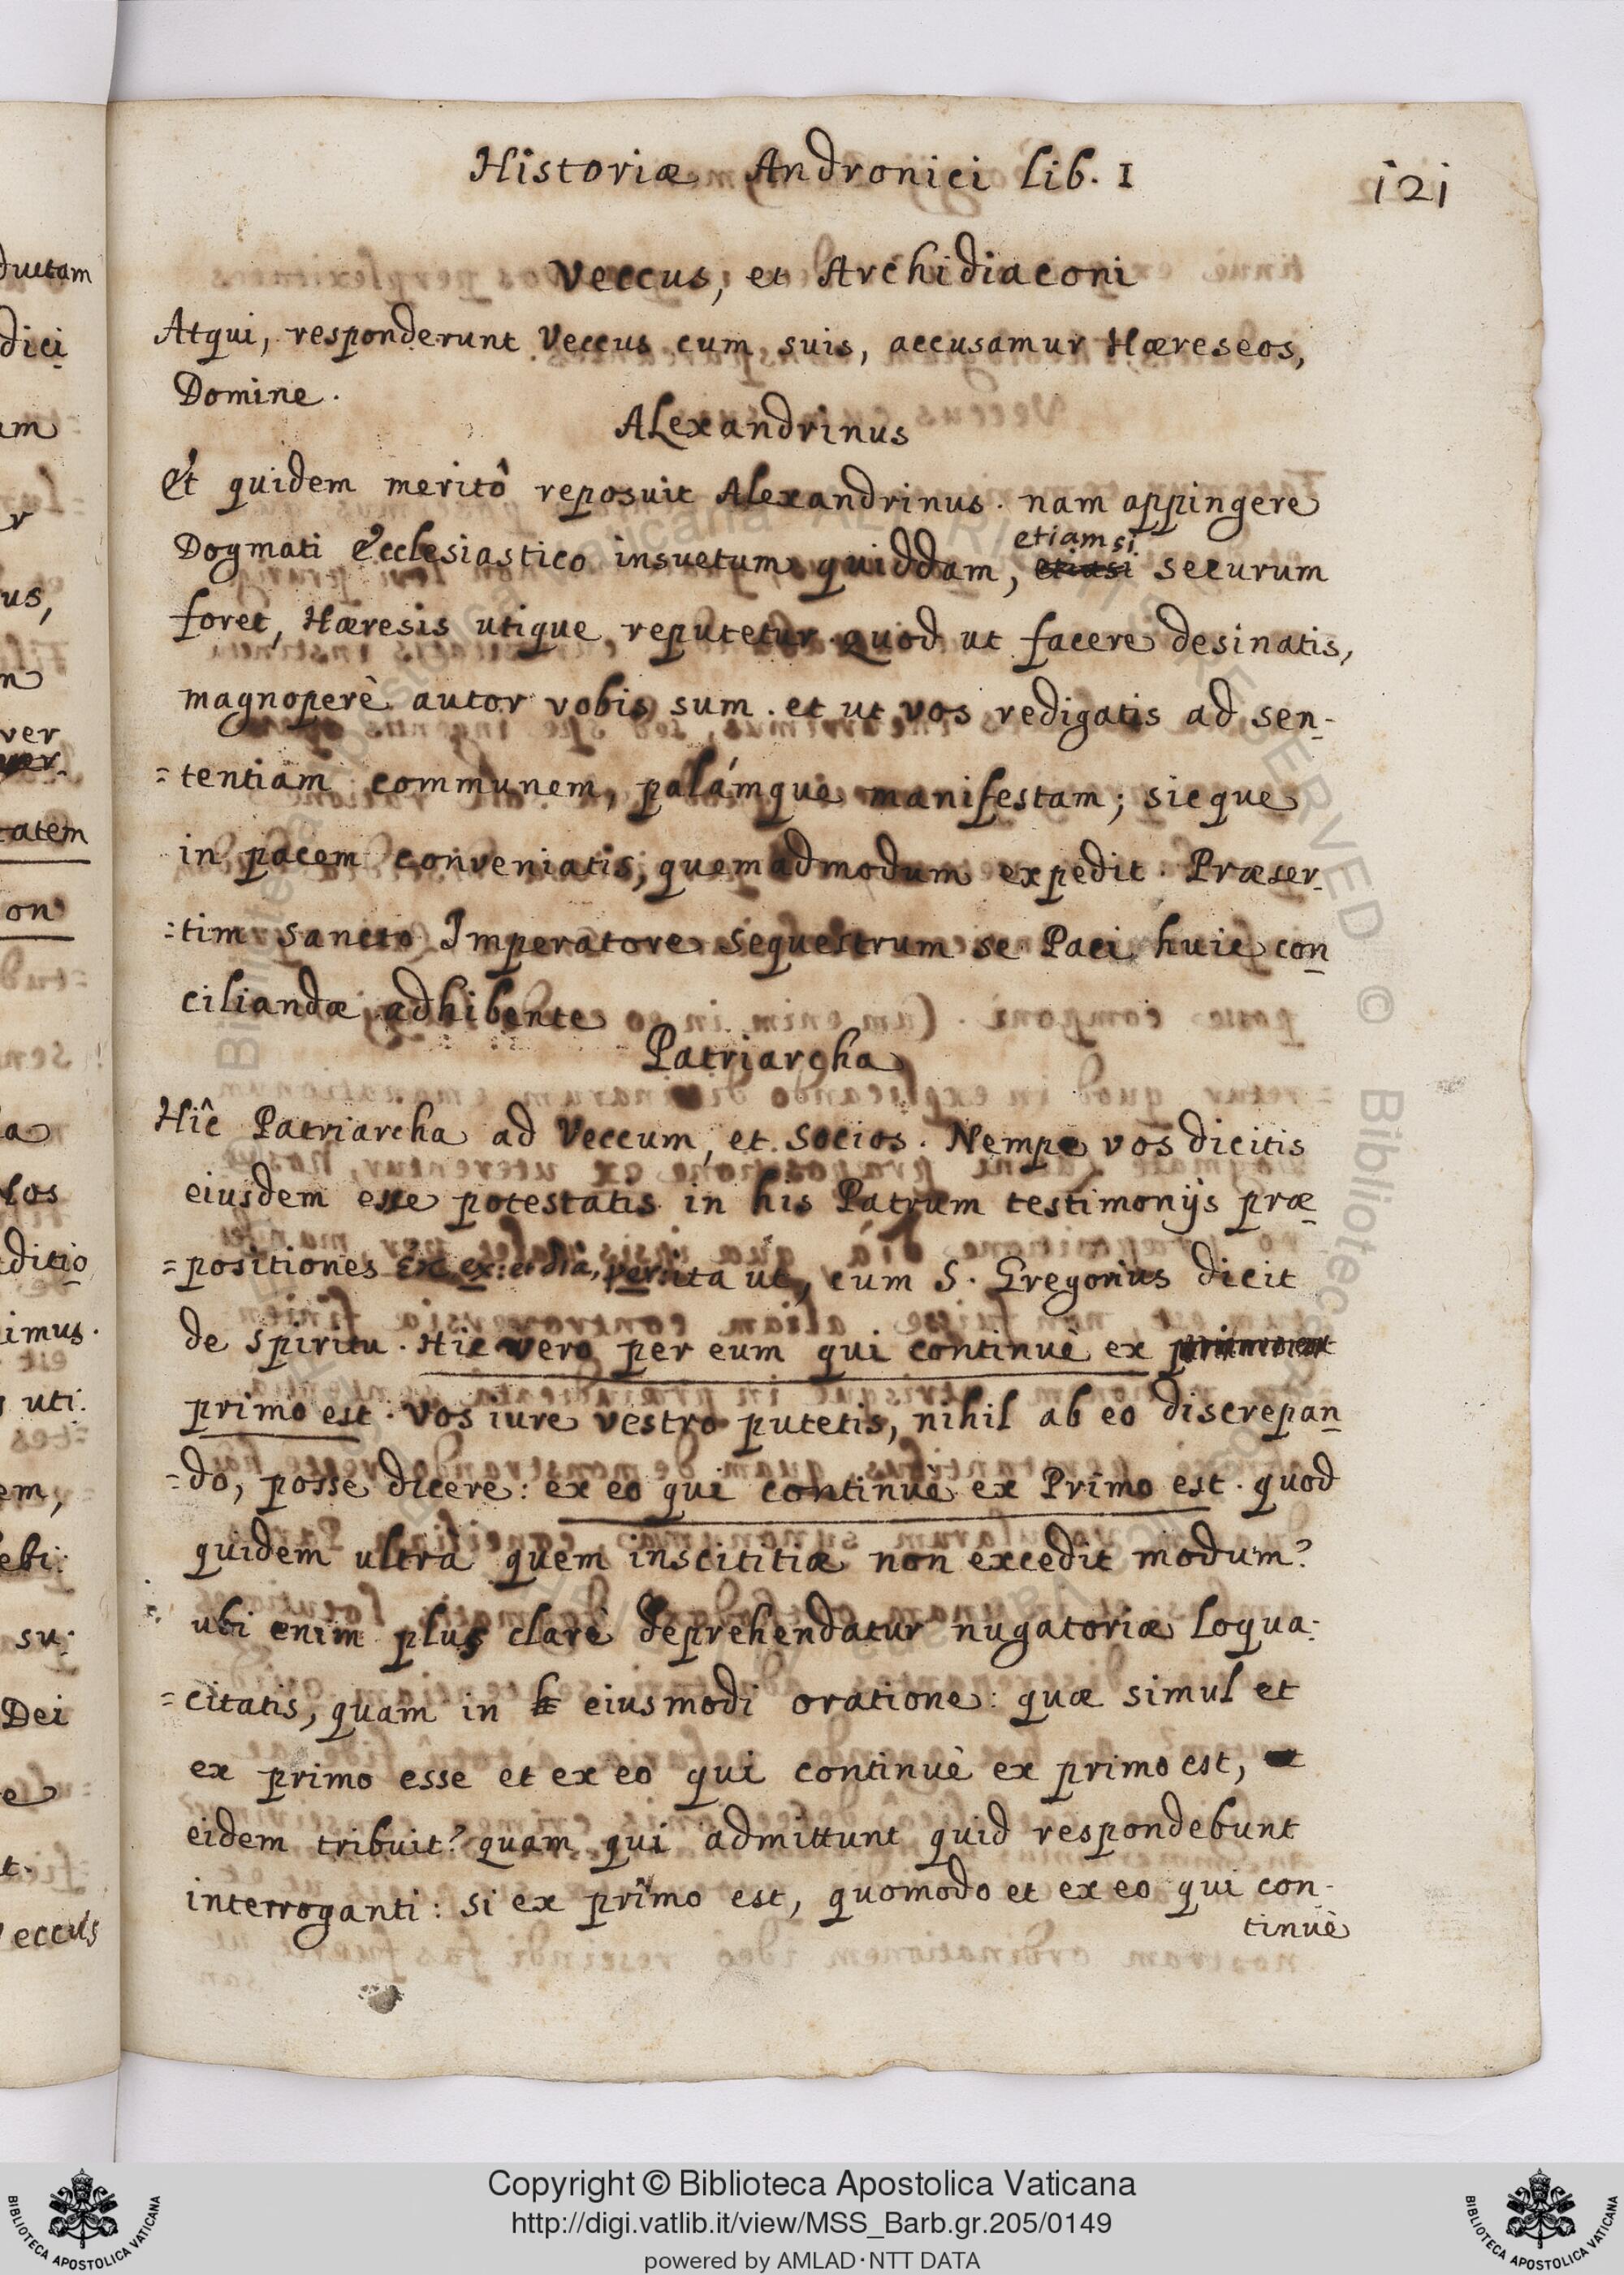 Historiæ Andronici Lib. 1
121
Veccus, et Archidiaconi
Atqui, responderunt Veccus cum suis, accusamur Hæreseos,
Domine.
Alexandrinus
Et quidem meritô reposuit Alexandrinus. nam appingere
Dogmati Ecclesiastico insuetum quiddam, etiamsi securum
foret, Hæresis utique reputetur. quod ut facere desinatis,
magnoperè autor vobis sum. et ut vos redigatis ad sen-
=tentiam communem, palámque manifestam; sicque
in pacem conveniatis, quemadmodum expedit. Præser-
=tim sancto Imperatore sequestrum se Paci huic con
ciliandæ adhibente
Patriarcha
Hîc Patriarcha ad Veccum, et socios. Nempe vos dicitis
eiusdem esse potestatis in his Patrum testimonijs præ
=positiones ex: et dia, per: ita ut, cum S. Gregorius dicit
de spiritu. Hic vero per eum qui continuè ex
primo est. vos iure vestro putetis, nihil ab eo discrepan
=do, posse dicere: ex eo qui continuè ex Primo est. quod
quidem ultra quem inscititiæ non excedit modum?
ubi enim plus clarè deprehendatur nugatoriæ Loqua-
=citatis, quam in eiusmodi oratione: quæ simul et
ex primo esse et ex eo qui continuè ex primo est,
eidem tribuit? quam qui admittunt quid respondebunt
interroganti: si ex primo est, quomodo et ex eo qui con-
tinuè
ductam
dici
am
r
us,
n
ver
tatem
on
la
los
ditio
imus.
uti.
em,
ebi:
su:
Dei
e
t.
eccus
Copyright © Biblioteca Apostolica Vaticana
http://digi.vatlib.it/view/MSS_Barb.gr.205/0149
powered by AMLAD·NTT DATA
BIBLIOTECA APOSTOLICA VATICANA
BIBLIOTECA APOSTOLICA VATICANA